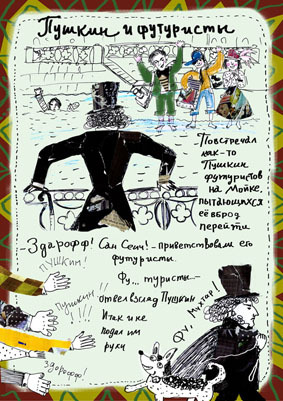 Пушкин и футуристы
Повстречал
как-то
Пушкин
футуристов
на Мойке,
пытающихся
её вброд
перейти
- Здарофф! Сан Сеич! - приветствовали его
футуристы.
Фу... туристы -
отвёл взгляд Пушкин
И так и не
подал им
руки
ПУШКИН!
Пушкин!!
!!!
Здарофф!